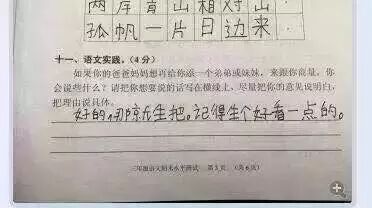 两岸青山相对出
孤帆一片日边来
十一、语文实践。(4分)
如果你的爸爸妈妈想再给你添一个弟弟或妹妹,来跟你商量,你
会说些什么?请把你想要说的话写在横线上,尽量把你的意见说明白,
把理由说具体。
好的,那就生把。记得生个好看一点的。
三年级语文期末水平测试 第5页 (共6页)